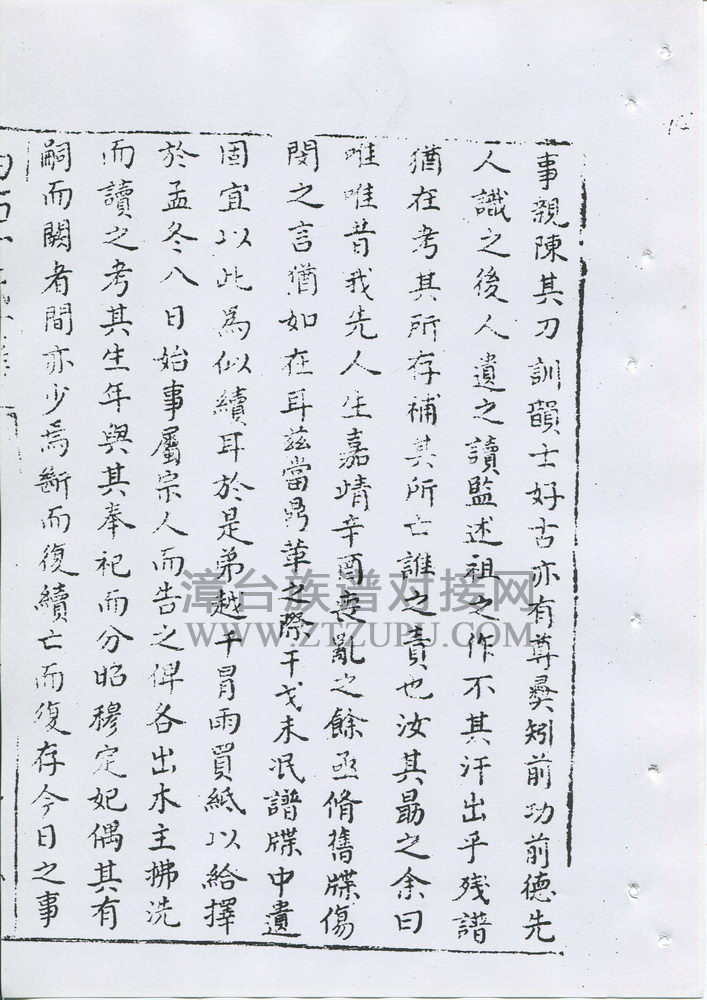 事親陳其刀訓韻士好古亦有尊彜矧前功前德先
人識之後人遺之讀監述祖之作不其汗出乎残譜
猶在考其所存補其所亡誰之責也汝其勗之余曰
唯唯昔我先人生嘉靖辛酉喪亂之餘亟脩舊牒傷
閔之言猶如在耳兹當鼎革之際干戈未泯譜牒中遺
固宜以此為似續耳於是弟越千冒雨買紙以給擇
於孟冬八日始事屬宗人而告之俾各出木主拂洗
而讀之考其生年與其奉祀而分昭穆定妃偶其有
嗣而闕者間亦少焉斷而復續亡而復存今日之事
漳台族谱对接网
WWW.ZTZUPU.COM